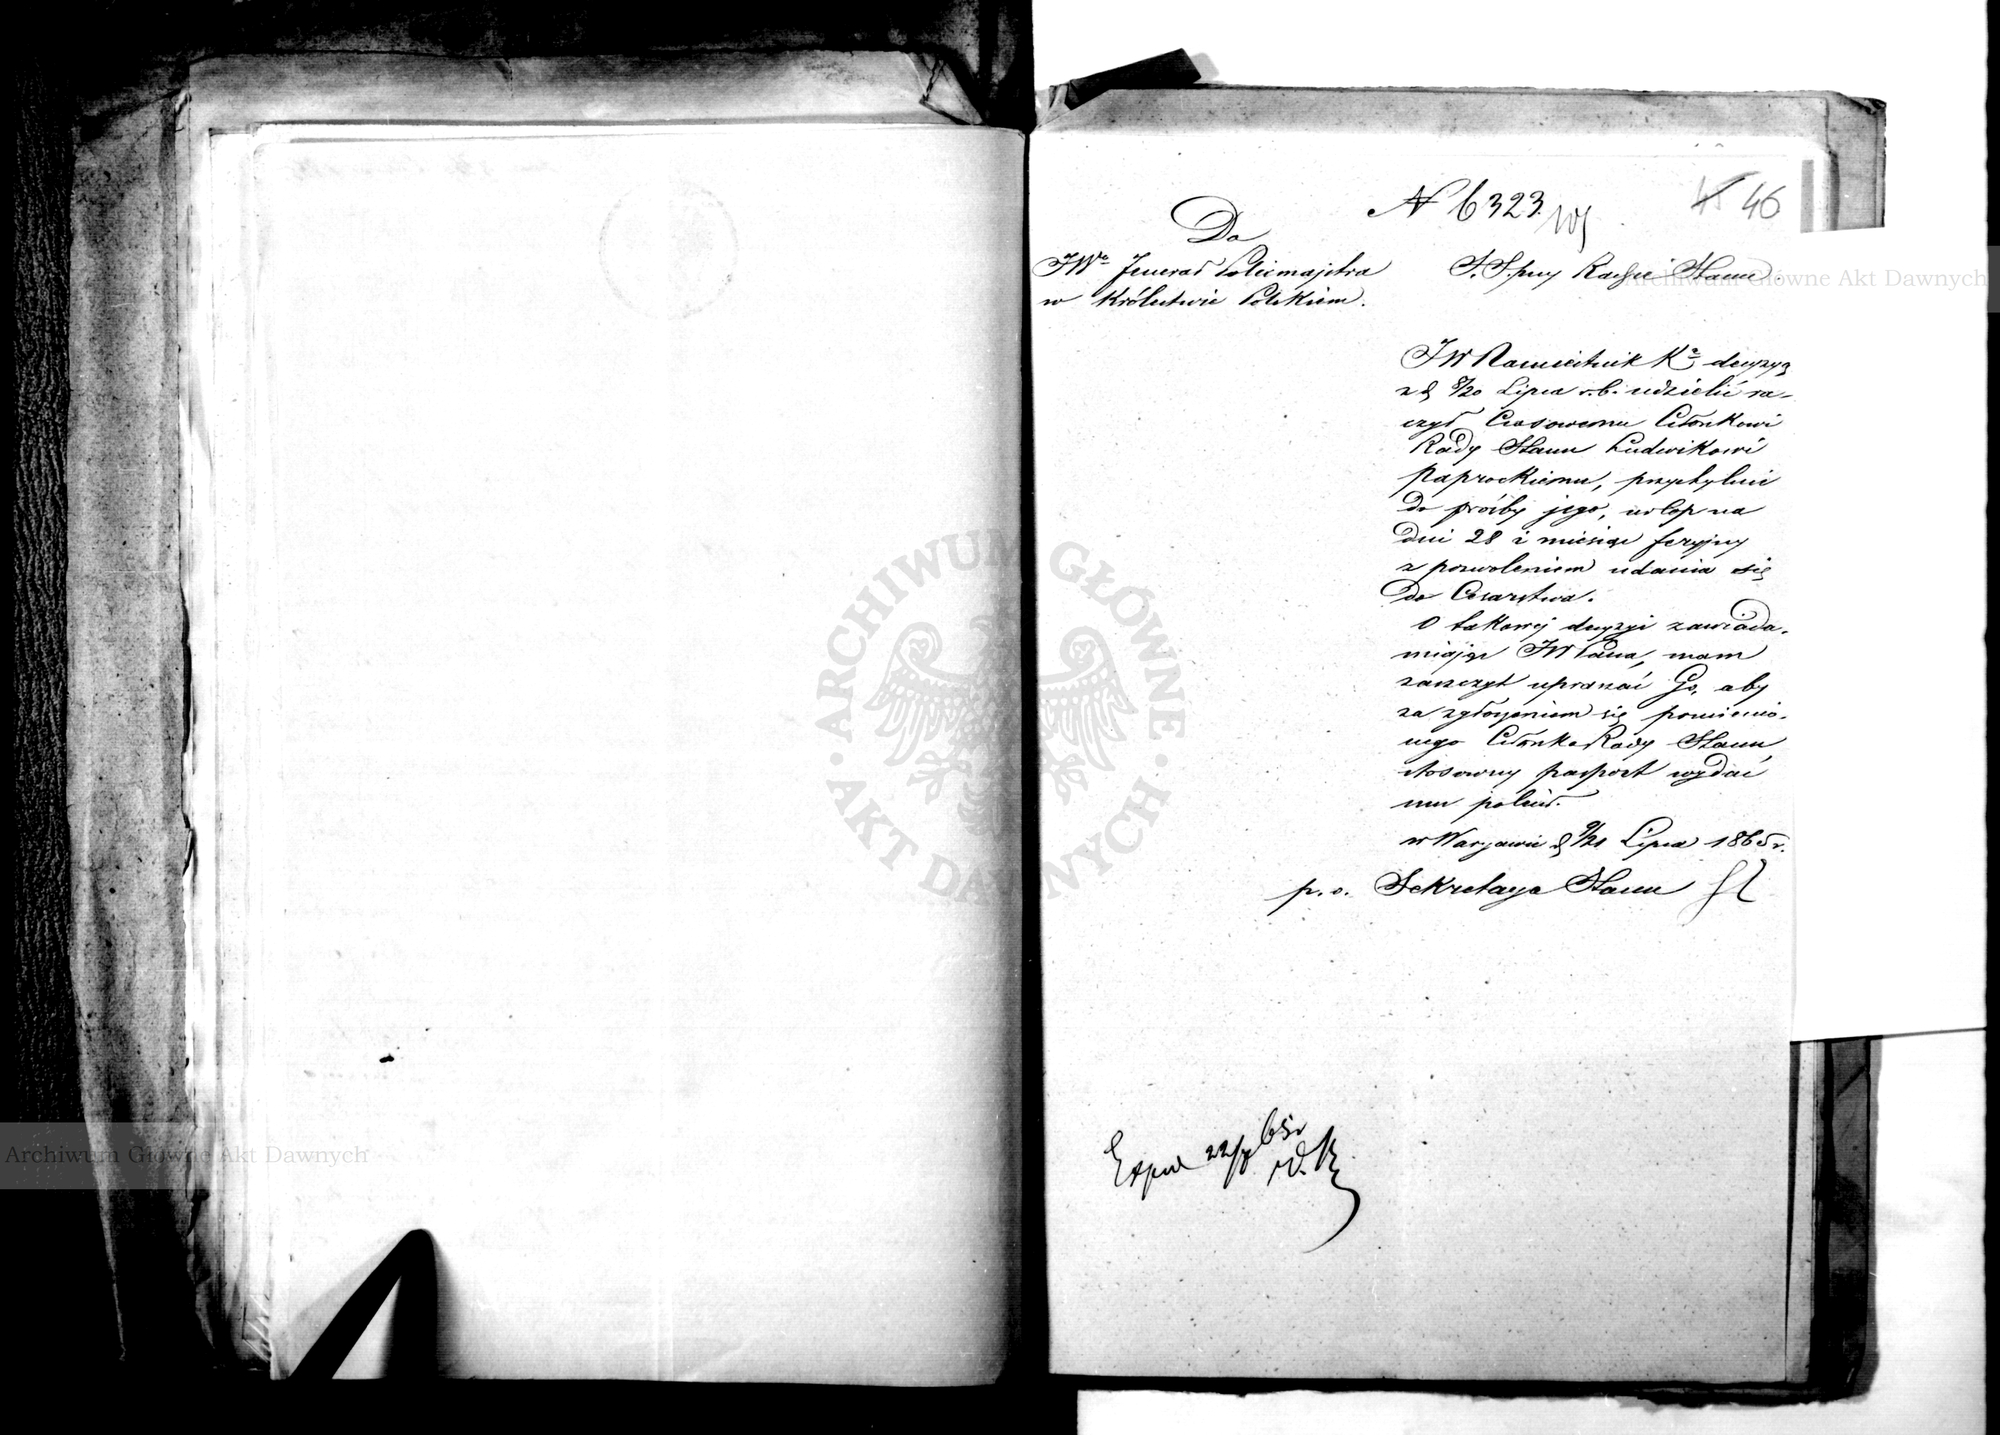 45 46
N 6323
Do
JWo Jenerał Policmajstra
w Królestwie Polskiem.
S. S. przy Radzie Stanu.
JW Namiestnik Ko decyzyą
z d 8/20 Lipca r.b. udzielić ra-
czył Czasowemu Członkowi
Rady Stanu Ludwikowi
Paprockiemu, przychylnie
do prośby jego, urlop na
dni 28 i miesiąc feryjny
z pozwoleniem udania się
do Cesarstwa.
O takowej decyzyi zawiada-
miając JW Pana, mam
zaszczyt upraszać Go, aby
za zgłoszeniem się pomienio-
nego Członka Rady Stanu,
stosowny paszport wydać
mu polecił.
w Warszawie d 9/21 Lipca 1865 r.
p. o. Sekretarza Stanu
Exped 22/7 65 r
ARCHIWUM GŁÓWNE
AKT DAWNYCH
Archiwum Główne Akt Dawnych
Archiwum Główne Akt Dawnych